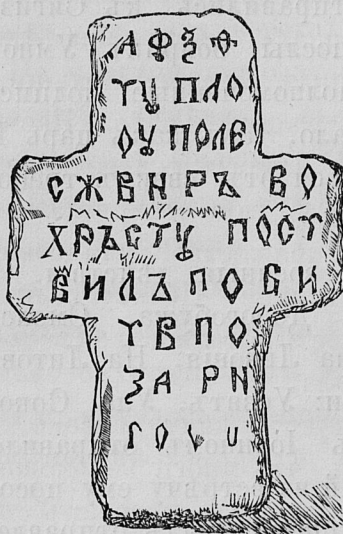 АФѮѲ
ТꙊ ПЛО
ОУ ПОЛЕ
СЖВНРЪ ВО
ХРЪСТꙊ ПОСТ
ВИЛЪ ПОВИ
ТВПО
ЗА РН
ГО